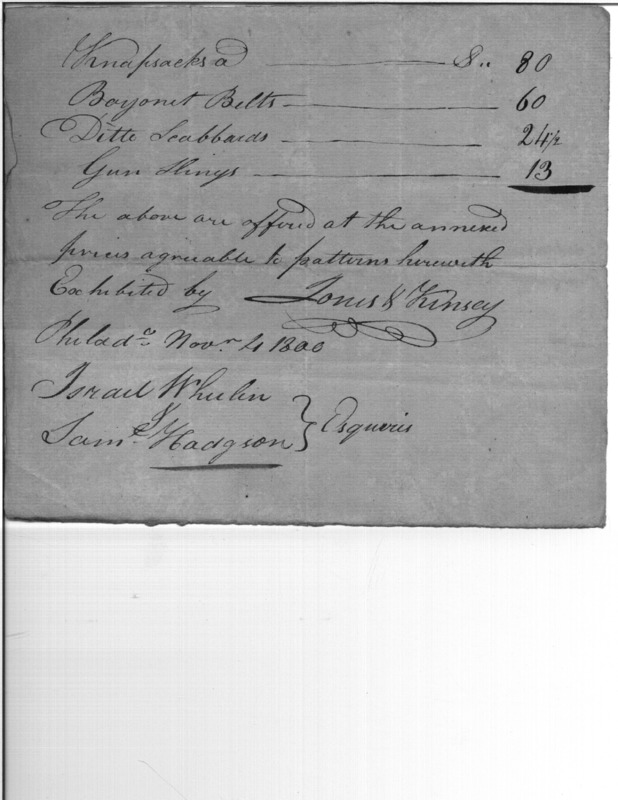 Knapsacks a $ .. 80
Bayonet Belts 60
Ditto Scabbards 24 1/2
Gun Slings 13
The above are offered at the annexed
prices agreeable to patterns herewith
Exhibited by Jones & Kinsey
Philada. Novr. 4 1800
Israel Whelen
Saml. Hodgson } Esquires